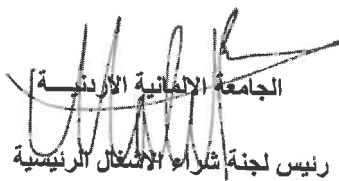 الجامعة الالمانية الاردنيـــة
رئيس لجنة شراء الاشغال الرئيسية